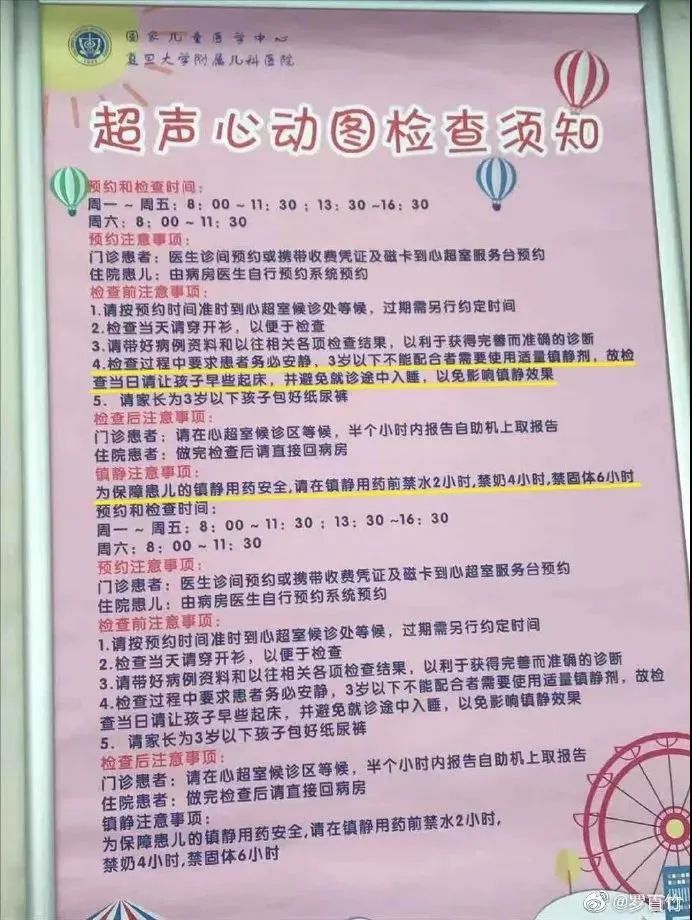 国家儿童医学中心
复旦大学附属儿科医院
超声心动图检查须知
预约和检查时间:
周一 ~ 周五: 8: 00 ~ 11: 30 ; 13: 30 ~16: 30
周六: 8: 00 ~ 11: 30
预约注意事项:
门诊患者: 医生诊间预约或携带收费凭证及磁卡到心超室服务台预约
住院患儿: 由病房医生自行预约系统预约
检查前注意事项:
1.请按预约时间准时到心超室候诊处等候, 过期需另行约定时间
2.检查当天请穿开衫, 以便于检查
3.请带好病例资料和以往相关各项检查结果, 以利于获得完善而准确的诊断
4.检查过程中要求患者务必安静, 3岁以下不能配合者需要使用适量镇静剂, 故检
查当日请让孩子早些起床, 并避免就诊途中入睡, 以免影响镇静效果
5. 请家长为3岁以下孩子包好纸尿裤
检查后注意事项:
门诊患者: 请在心超室候诊区等候, 半个小时内报告自助机上取报告
住院患者: 做完检查后请直接回病房
镇静注意事项:
为保障患儿的镇静用药安全,请在镇静用药前禁水2小时,禁奶4小时,禁固体6小时
预约和检查时间:
周一 ~ 周五: 8: 00 ~ 11: 30 ; 13: 30 ~16: 30
周六: 8: 00 ~ 11: 30
预约注意事项:
门诊患者: 医生诊间预约或携带收费凭证及磁卡到心超室服务台预约
住院患儿: 由病房医生自行预约系统预约
检查前注意事项:
1.请按预约时间准时到心超室候诊处等候, 过期需另行约定时间
2.检查当天请穿开衫, 以便于检查
3.请带好病例资料和以往相关各项检查结果, 以利于获得完善而准确的诊断
4.检查过程中要求患者务必安静, 3岁以下不能配合者需要使用适量镇静剂, 故检
查当日请让孩子早些起床, 并避免就诊途中入睡, 以免影响镇静效果
5. 请家长为3岁以下孩子包好纸尿裤
检查后注意事项:
门诊患者: 请在心超室候诊区等候, 半个小时内报告自助机上取报告
住院患者: 做完检查后请直接回病房
镇静注意事项:
为保障患儿的镇静用药安全,请在镇静用药前禁水2小时,
禁奶4小时,禁固体6小时
@罗直竹